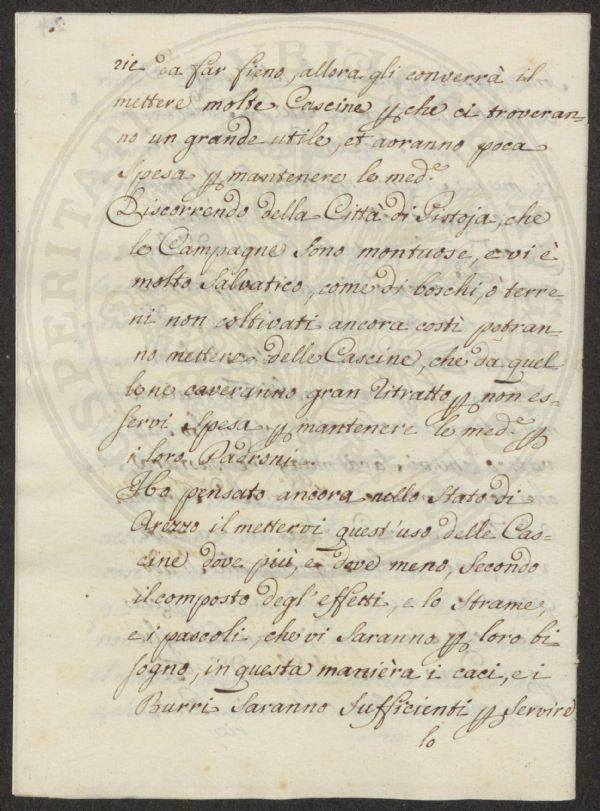 rie da far fieno, allora gli converrà il
mettere molte Cascine p che ci troveran=
no un grande utile, et avranno poca
spesa p mantenere le med.e
Discorrendo della Città di Pistoja, che
le Campagne sono montuose, e vi è
molto Salvatico, come di boschi, ò terre
ni non coltivati ancora costì potran=
no mettere delle Cascine, che da quel=
le ne caveranno gran Ritratto p non es=
servi Spesa p mantenere le med.e p
i loro Padroni.
Ho pensato ancora nello Stato di
Arezzo il mettervi quest'uso delle Cas=
cine dove più, e dove meno, secondo
il composto degl'effetti, e lo Strame,
e i pascoli, che vi saranno p loro bi
sogno, in questa manièra i caci, e i
Burri saranno sufficienti p servire
lo